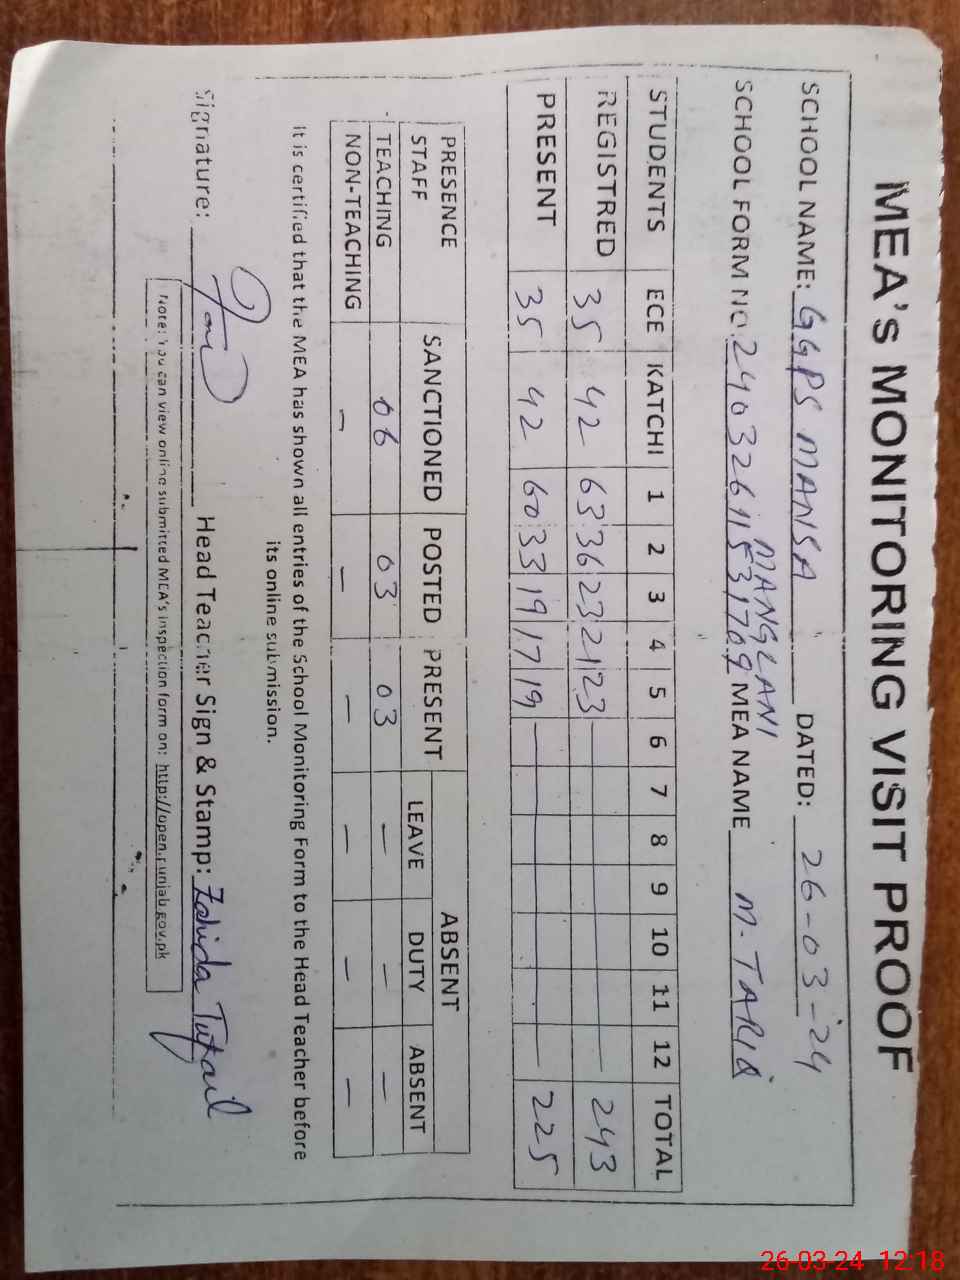 MEA's MONITORING VISIT PROOF
SCHOOL NAME: GGPS MANSA DATED: 26-03-24
MANGLANI
SCHOOL FORM NO. MEA NAME M. TARIQ
STUDENTS ECE KATCHI 1 2 3 4 5 6 7 8 9 10 11 12 TOTAL
REGISTRED 35 42 63 36 23 21 23 — 243
PRESENT 35 42 60 33 19 17 19 — 225
PRESENCE STAFF SANCTIONED POSTED PRESENT ABSENT
LEAVE DUTY ABSENT
TEACHING 06 03 03 — — —
NON-TEACHING — — — — — —
It is certified that the MEA has shown all entries of the School Monitoring Form to the Head Teacher before
its online submission.
Signature: Head Teacher Sign & Stamp: Zahida Tufail
Note: You can view online submitted MEA's inspection form on: http://open.punjab.gov.pk
26-03-24 12:18